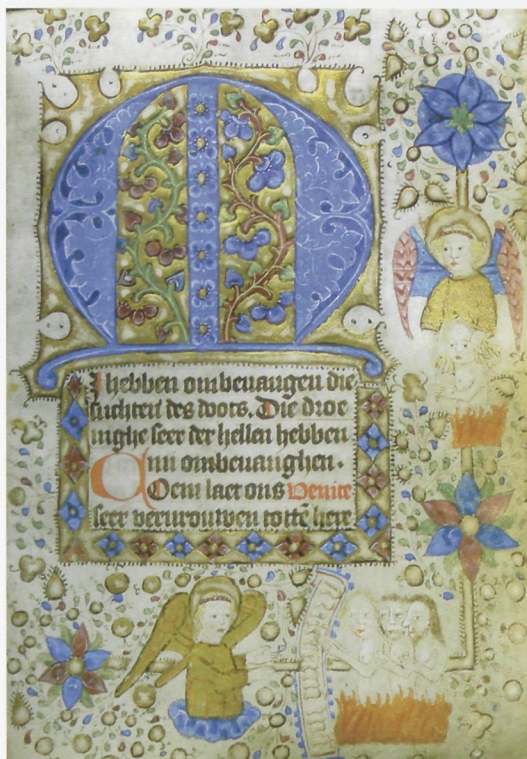 MI hebben ombeuangen die
suchten des doots. Die droe
nighe seer der hellen hebben
mi ombeuanghen.
COemt laet ons Venite
seer verurouwen tottē here